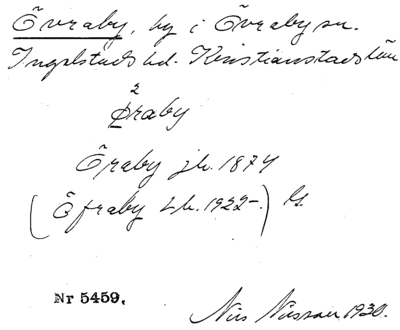 Övraby, by i Övraby sn.
Ingelstads hd. Kristianstads län
2
Öraby
Öraby jb. 1874
(Öfraby Lb. 1922-.)
Nr 5459.
Nils Nilsson 1930.